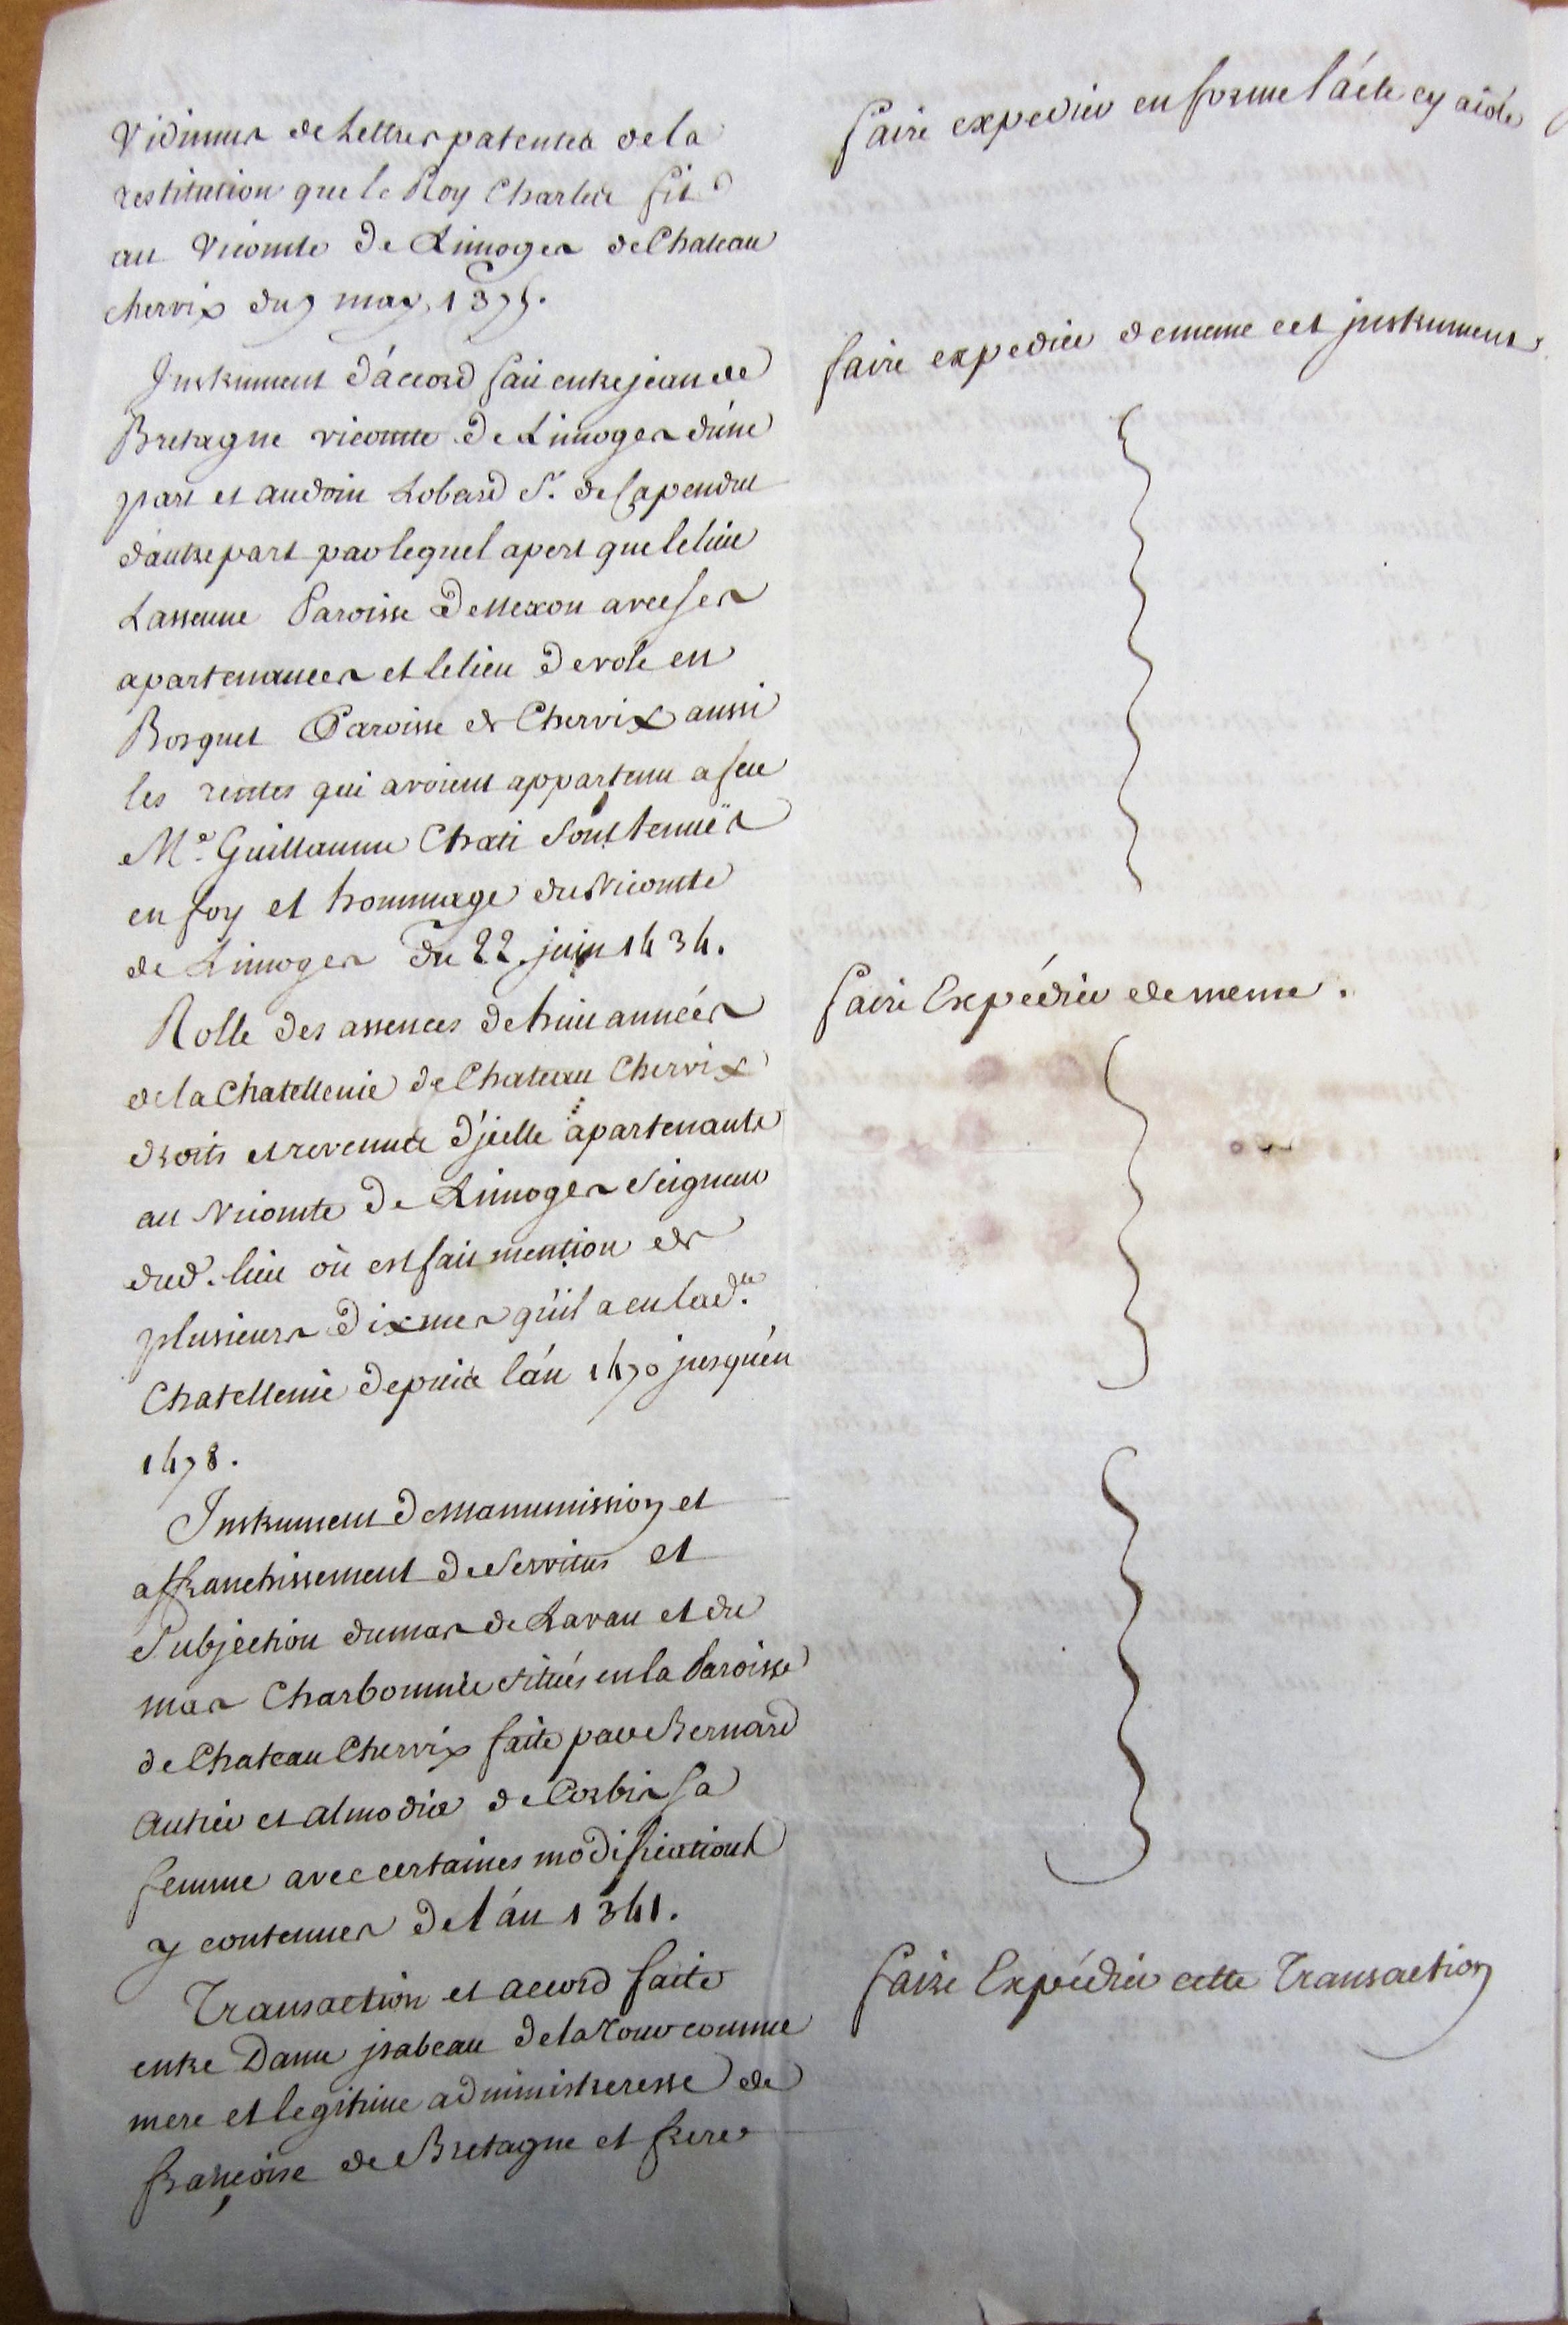 Vidimus de Lettres patentes de la
restitution que le Roy Charles fit
au Vicomte de Limoges de Chateau
chervix du 9 may 1375.
Instrument d'accord fait entre jean de
Bretagne vicomte de Limoges d'une
part et audoin Lobard Sr. de
d'autre part par lequel apert que le lieu
Lasseune Paroisse de Nexon avec ses
apartenances et le lieu de en
Bosquet Paroisse de Chervix aussi
les rentes qui avoient appartenu a feu
Me. Guillaume Chati sont tenuës
en foy et hommage du Vicomte
de Limoges du 22 juin 1434.
Rolle des assences de huit années
de la Chatellenie de Chateau Chervix
droits et revenus d'jcelle apartenants
au Vicomte de Limoges Seigneur
dud. lieu où est fait mention de
plusieurs dixmes qu'il a en lade.
Chatellenie depuis l'an 1470 jusqu'en
1478.
Instrument de Manumission et
affranchissement de Servitus et
Subjection du mas de Lavau et du
mas Charbonnier situés en la Paroisse
de Chateau Chervix faite par Bernard
Autier et almodie de Corbis sa
femme avec certaines modifications
y contenues de l'an 1341.
Transaction et accord faite
entre Dame jsabeau de la Tour comme
mere et legitime administreresse de
françoise de Bretagne et frere
faire expedier en forme l'acte cy a côté
faire expedier de meme cet jnstrument
faire Expédier de meme.
faire Expédier cette Transaction